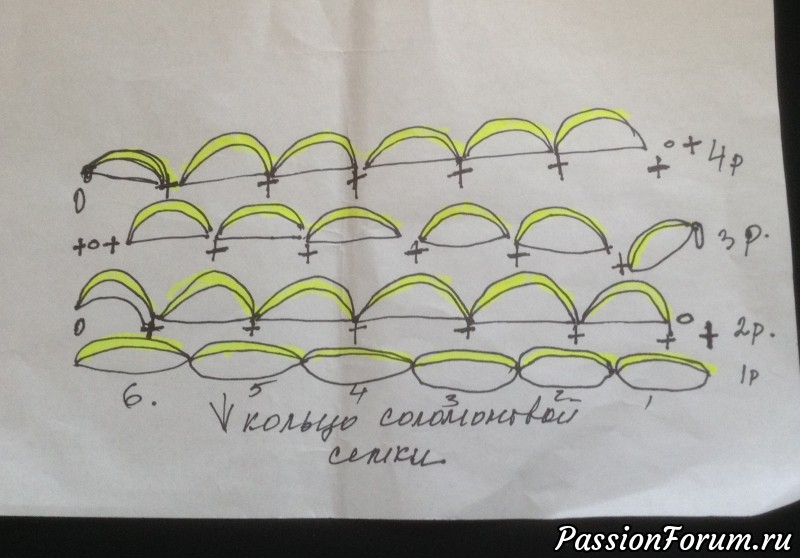 4р
3р.
2р.
1р
6. 5 4 3 2 1
кольцо соломоновой
сетки.
PassionForum.ru